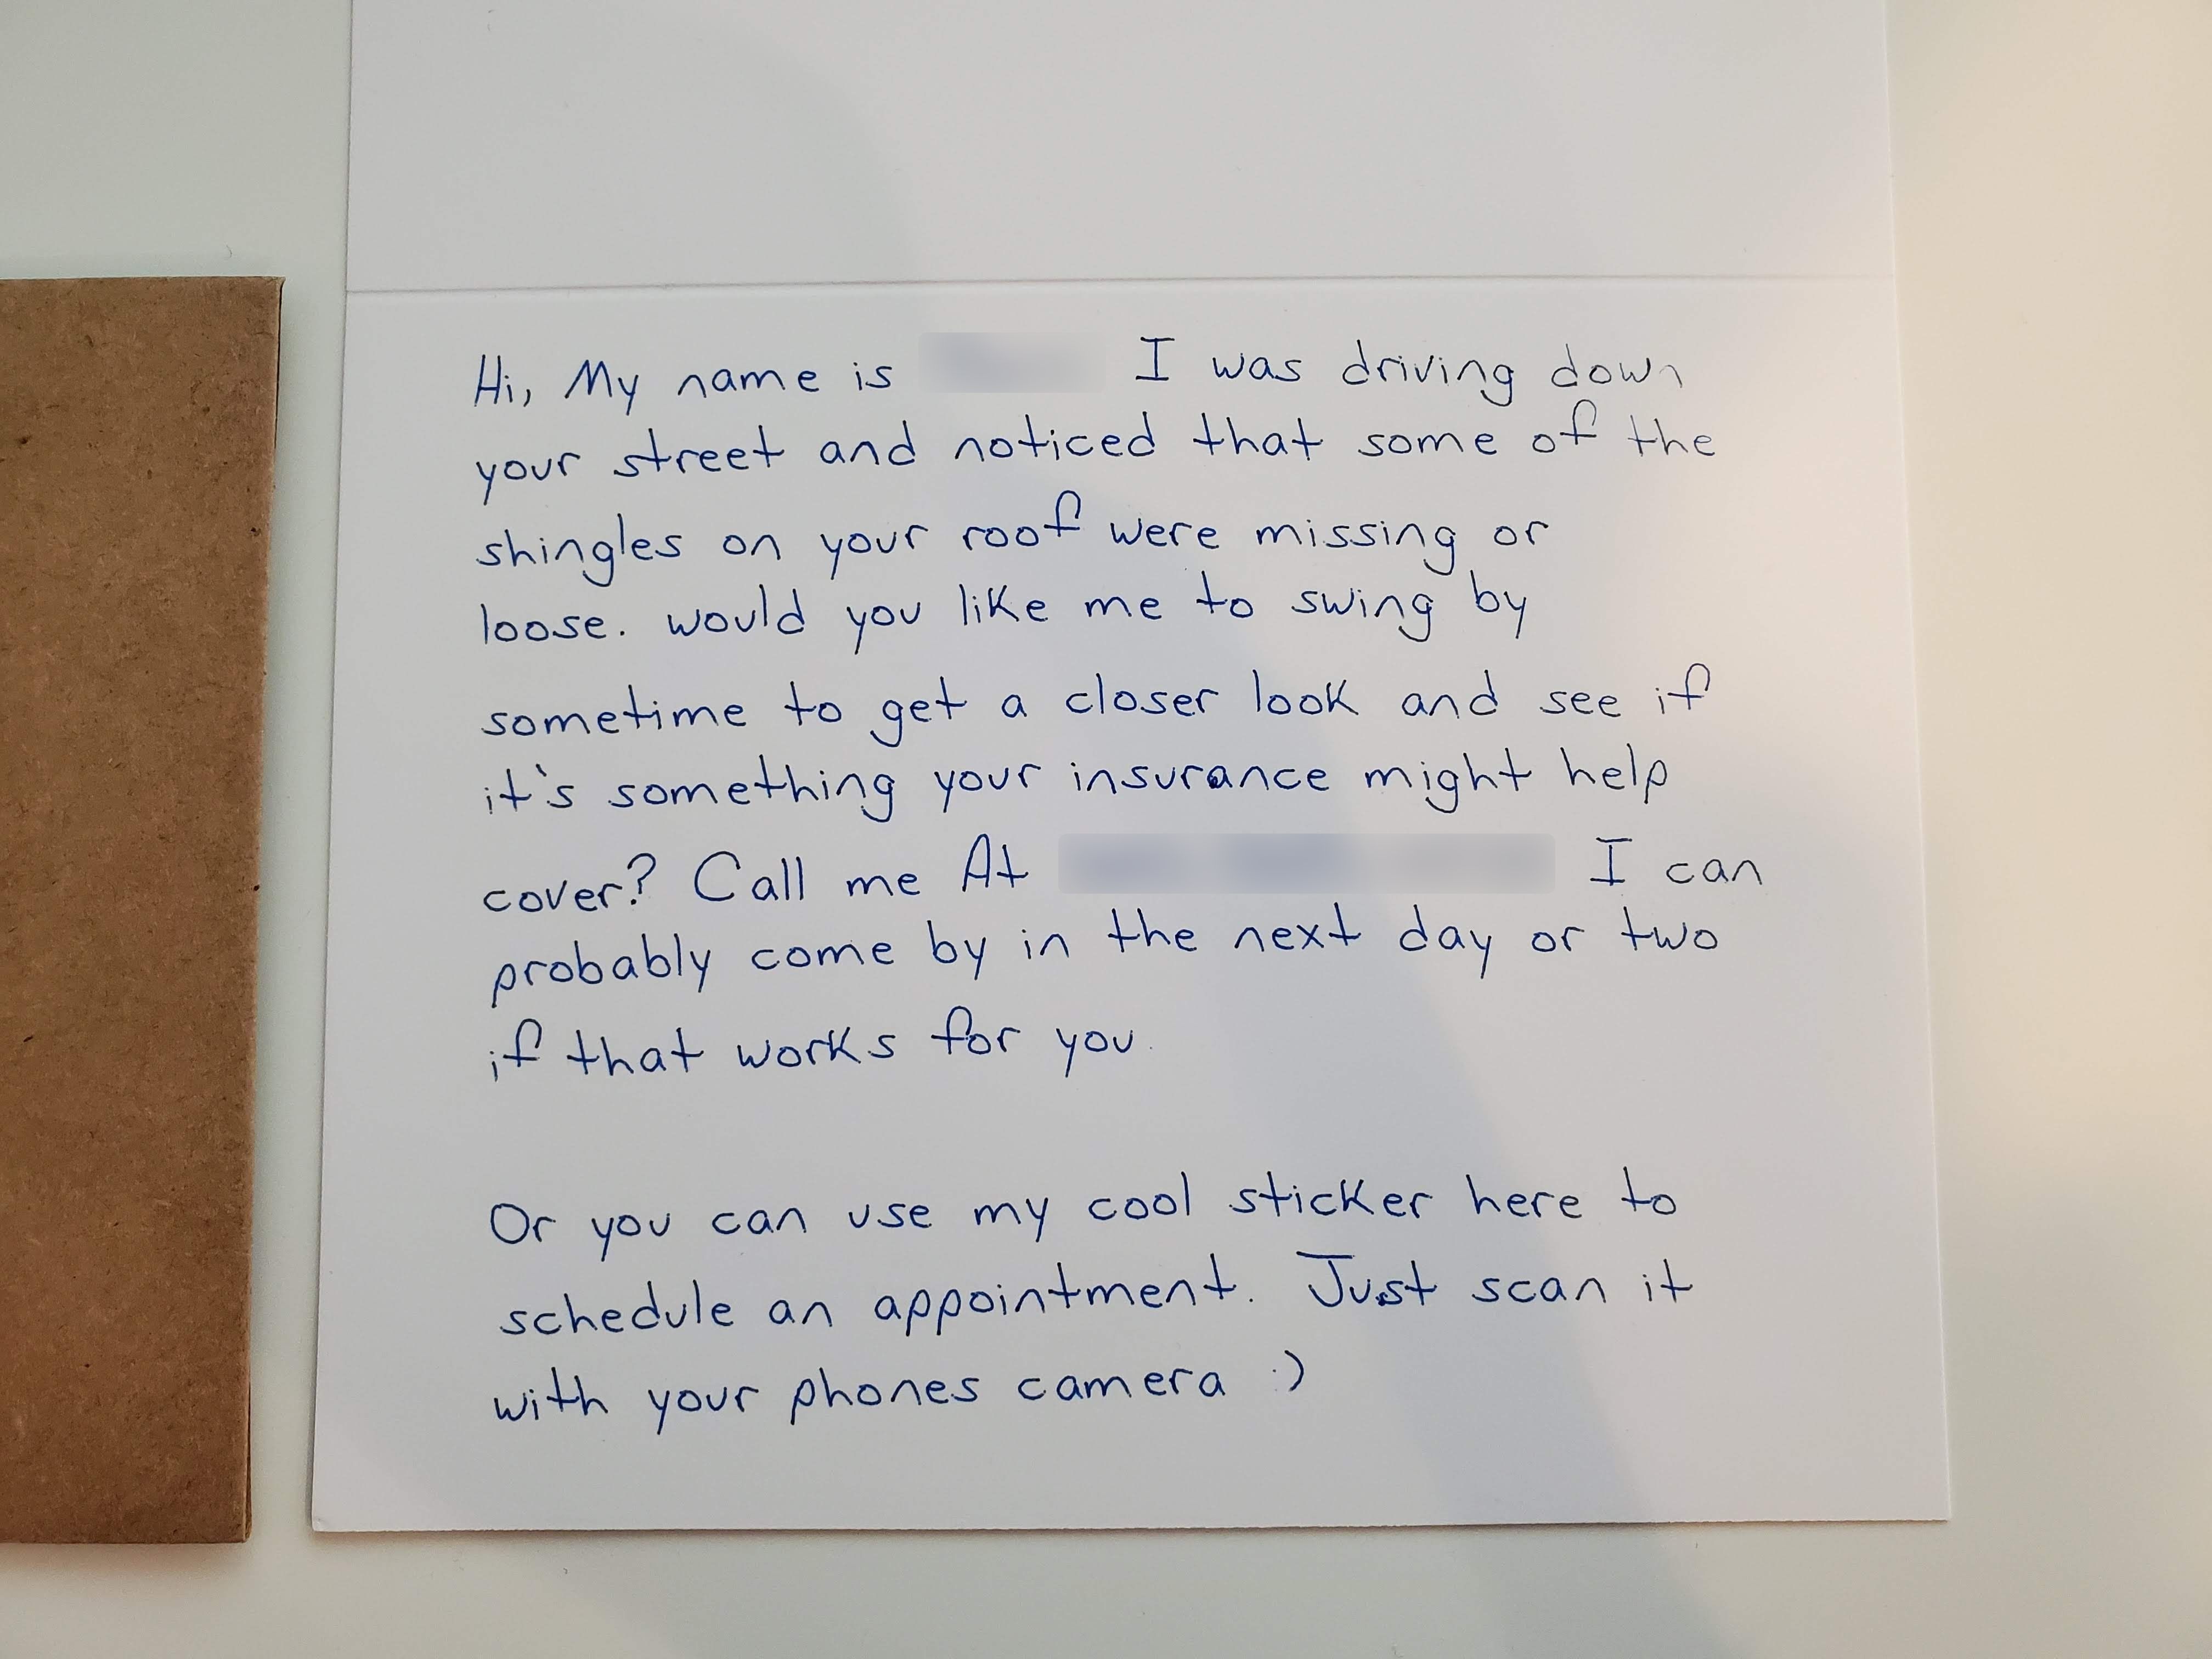 Hi, My name is I was driving down
your street and noticed that some of the
shingles on your roof were missing or
loose. would you like me to swing by
sometime to get a closer look and see if
it's something your insurance might help
cover? Call me At I can
probably come by in the next day or two
if that works for you.
Or you can use my cool sticker here to
schedule an appointment. Just scan it
with your phones camera :)